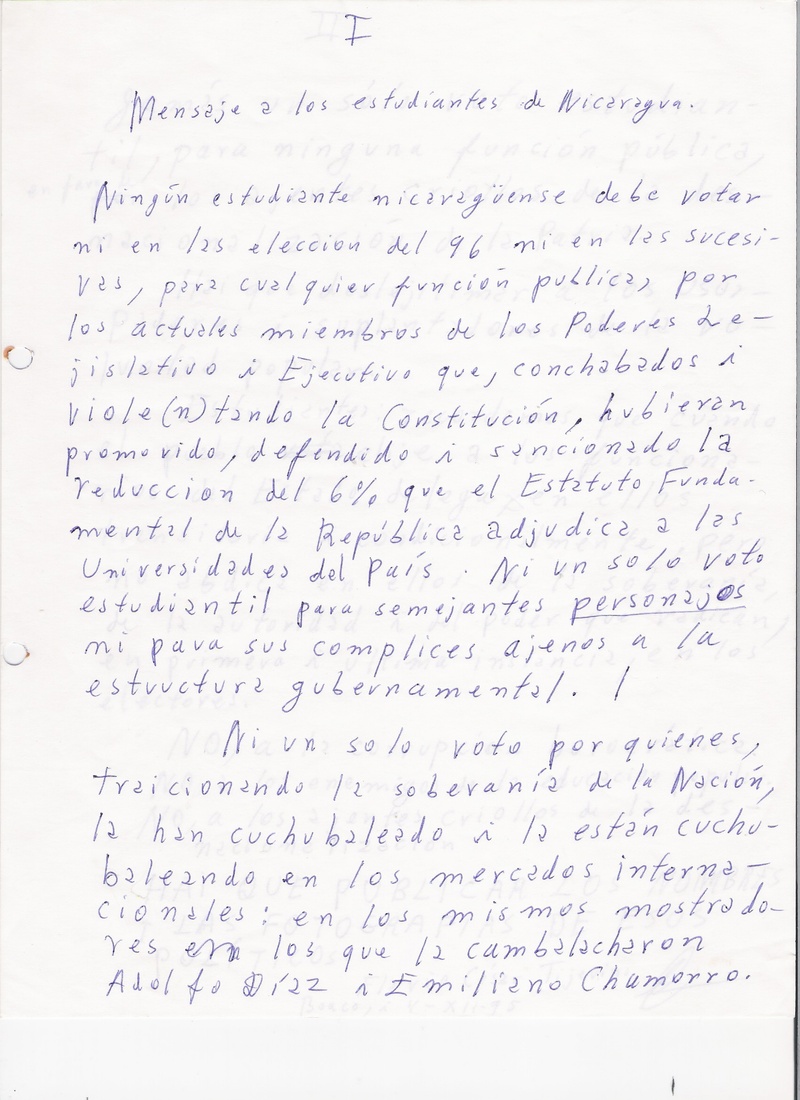 I
Mensaje a los estudiantes de Nicaragua.
Ningún estudiante nicaragüense debe votar
ni en las eleccion del 96 ni en las sucesi-
vas, para cualquier función publica, por
los actuales miembros de los Poderes Le-
jislativo i Ejecutivo que, conchabados i
viole(n)tando la Constitución, hubieran
promovido, defendido i sancionado la
reduccion del 6% que el Estatuto Funda-
mental de la República adjudica a las
Universidades del País. Ni un solo voto
estudiantil para semejantes personajos
ni para sus complices ajenos a la
estructura gubernamental. /
Ni un solo voto por quienes,
traicionando la soberanía de la Nación,
la han cuchubaleado i la están cuchu-
baleando en los mercados interna-
cionales: en los mismos mostrado-
res en los que la cambalacharon
Adolfo Díaz i Emiliano Chamorro.